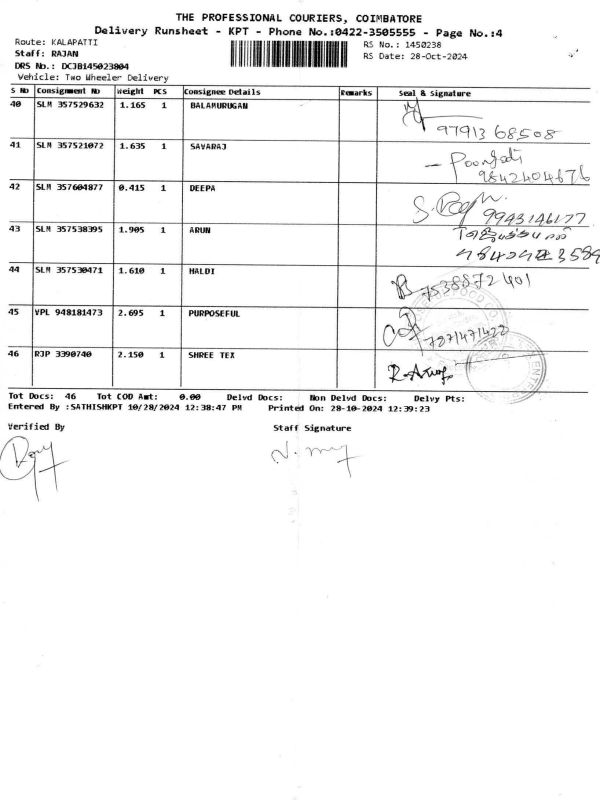 THE PROFESSIONAL COURIERS, COIMBATORE
Delivery Runsheet - KPT - Phone No.:0422-3505555 - Page No.:4
Route: KALAPATTI
Staff: RAJAN
DRS No.: DCJB145023804
Vehicle: Two Wheeler Delivery
RS No.: 1450238
RS Date: 28-Oct-2024
S No Consignment No Weight PCS Consignee Details Remarks Seal & signature
40 SLM 357529632 1.165 1 BALAMURUGAN
9791368508
41 SLM 357521072 1.635 1 SAVARAJ
9842404676
42 SLM 357604877 0.415 1 DEEPA
9943146177
43 SLM 357538395 1.905 1 ARUN
44 SLM 357530471 1.610 1 HALDI
7538872401
45 VPL 948181473 2.695 1 PURPOSEFUL
7871471422
46 RJP 3390740 2.150 1 SHREE TEX
Tot Docs: 46 Tot COD Amt: 0.00 Delvd Docs: Non Delvd Docs: Delvy Pts:
Entered By :SATHISHKPT 10/28/2024 12:38:47 PM Printed On: 28-10-2024 12:39:23
Verified By Staff Signature